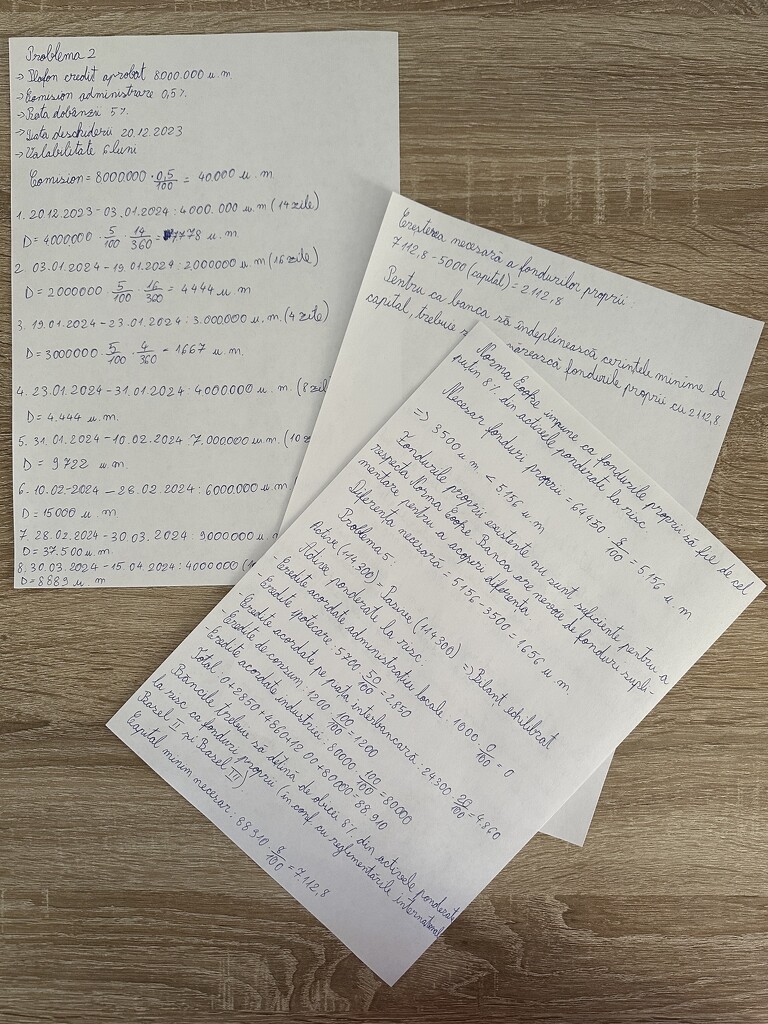 Problema 2
→ Plafon credit aprobat 8000.000 u.m.
→ Comision administrare 0,5%.
→ Rata dobânzii 5%.
→ Data deschiderii 20.12.2023
→ Valabilitate 6 luni
Comision = 8000000 · 0,5/100 = 40.000 u.m.
1. 20.12.2023 - 03.01.2024 : 4000.000 u.m (14 zile)
D = 4000000 · 5/100 · 14/360 = 7778 u.m.
2. 03.01.2024 - 19.01.2024 : 2000000 u.m (16 zile)
D = 2000000 · 5/100 · 16/360 = 4444 u.m
3. 19.01.2024 - 23.01.2024 : 3.000.000 u.m. (4 zile)
D = 3000000 · 5/100 · 4/360 = 1667 u.m.
4. 23.01.2024 - 31.01.2024 : 4000000 u.m. (8 zil
D = 4.444 u.m.
5. 31.01.2024 - 10.02.2024 7.000000 u.m. (10 z
D = 9722 u.m.
6. 10.02-2024 - 28.02.2024 : 6000000 u.m
D = 15000 u.m.
7. 28.02.2024 - 30.03.2024 : 9000000 u.m
D = 37.500 u.m.
8. 30.03.2024 - 15.04.2024 : 4000000 (1
D = 8889 u.m
Creșterea necesară a fondurilor proprii:
7112,8 - 5000 (capital) = 2112,8
Pentru ca banca să îndeplinească cerințele minime de
capital, trebuie mărească fondurile proprii cu 2112,8
Norma Cooke impune ca fondurile proprii să fie de cel
puțin 8% din activele ponderate la risc.
Necesar fonduri proprii = 64450 · 8/100 = 5156 u.m
=> 3500 u.m. < 5156 u.m
Fondurile proprii existente nu sunt suficiente pentru a
respecta Norma Cooke. Banca are nevoie de fonduri supli-
mentare pentru a acoperi diferența.
Diferența necesară = 5156 - 3500 = 1656 u.m.
Problema 5:
Active (111+300) = Pasive (111+300) => Bilanț echilibrat
Active ponderate la risc:
- Credite acordate administrației locale: 1000 · 0/100 = 0
- Credite ipotecare: 5700 · 50/100 = 2.850
- Credite acordate pe piața interbancară: 24300 · 20/100 = 4.860
- Credite de consum: 1200 · 100/100 = 1200
- Credite acordate industriei: 80000 · 100/100 = 80000
Total: 0+2850+4860+1200+80000 = 88.910
Băncile trebuie să dețină de obicei 8% din activele ponderate
la risc ca fonduri proprii (în conf. cu reglementările internațional
Basel II și Basel III).
Capital minim necesar: 88910 · 8/100 = 7.112,8